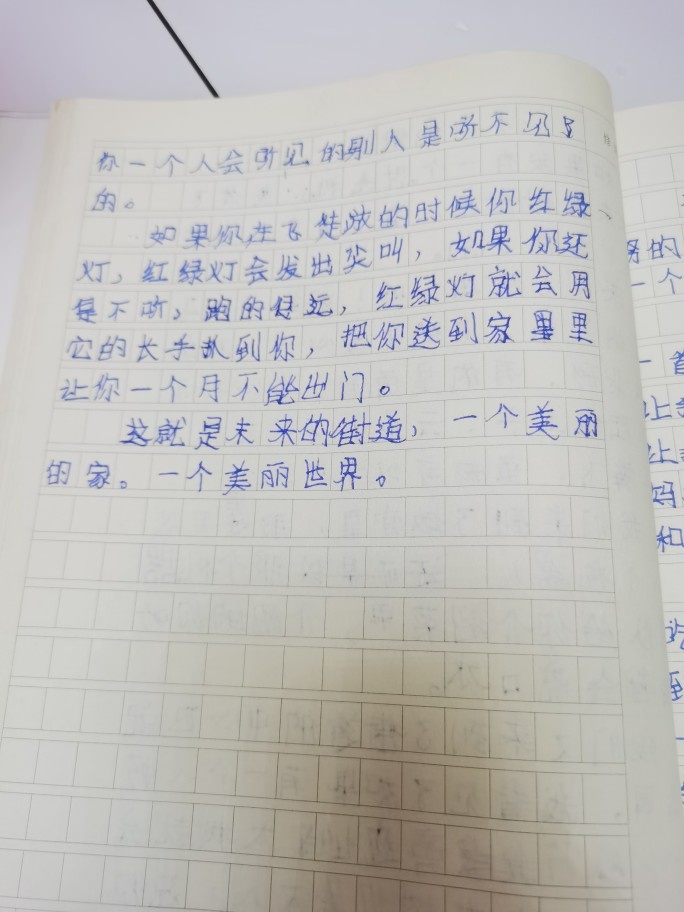 你一个人会听见的别人是听不见
的。
如果你在飞 的时候你红绿
灯，红绿灯会发出尖叫，如果你还
是不听，跑的 远，红绿灯就会用
它的长手扒到你，把你送到家里
让你一个月不能出门。
这就是未来的街道，一个美丽
的家。一个美丽世界。
的
一个
一首
让
让
妈
和
到